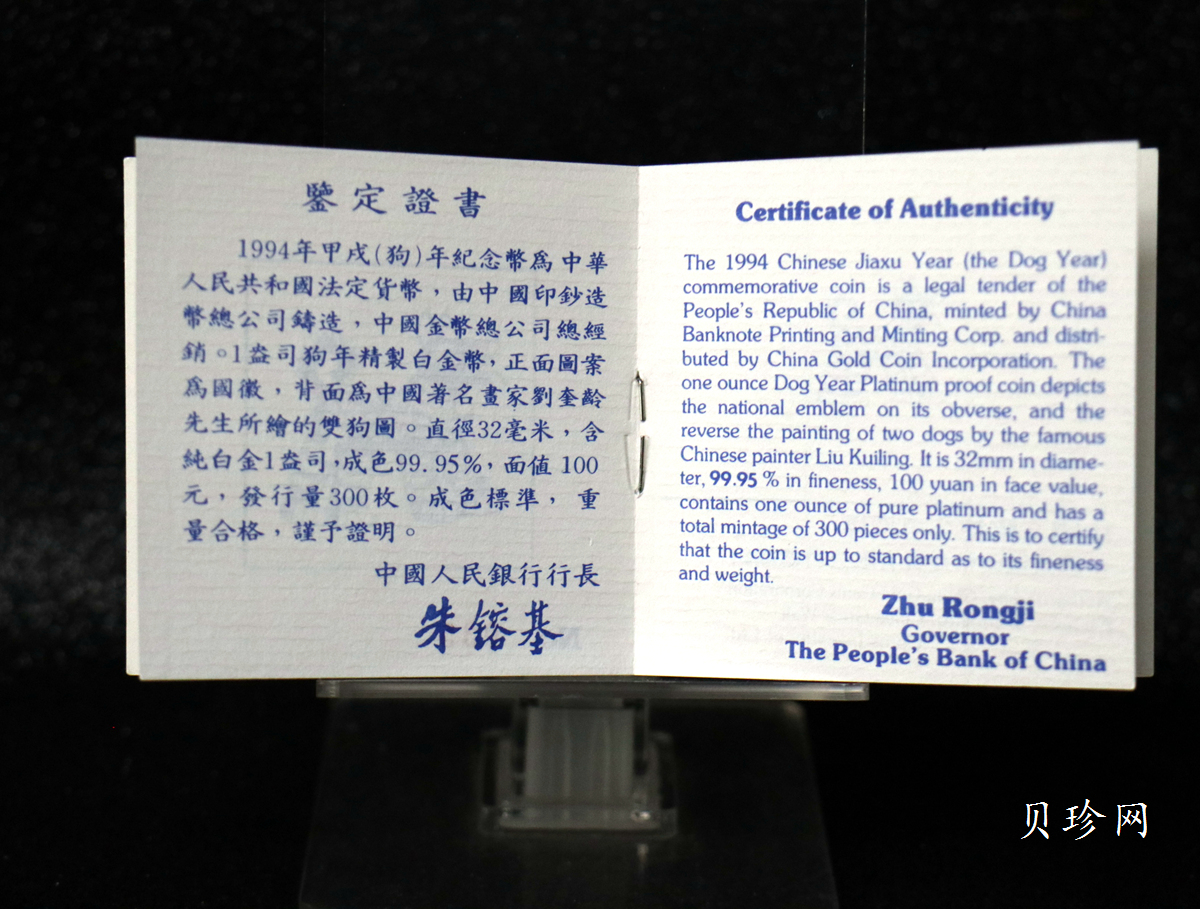 鑒定證書
1994年甲戌(狗)年紀念幣爲中華
人民共和國法定貨幣，由中國印鈔造
幣總公司鑄造，中國金幣總公司總經
銷。1盎司狗年精製白金幣，正面圖案
爲國徽，背面爲中國著名畫家劉奎齡
先生所繪的雙狗圖。直徑32毫米，含
純白金1盎司，成色99.95%，面值100
元，發行量300枚。成色標準，重
量合格，謹予證明。
中國人民銀行行長
朱鎔基
Certificate of Authenticity
The 1994 Chinese Jiaxu Year (the Dog Year)
commemorative coin is a legal tender of the
People's Republic of China, minted by China
Banknote Printing and Minting Corp. and distri-
buted by China Gold Coin Incorporation. The
one ounce Dog Year Platinum proof coin depicts
the national emblem on its obverse, and the
reverse the painting of two dogs by the famous
Chinese painter Liu Kuiling. It is 32mm in diame-
ter, 99.95 % in fineness, 100 yuan in face value,
contains one ounce of pure platinum and has a
total mintage of 300 pieces only. This is to certify
that the coin is up to standard as to its fineness
and weight.
Zhu Rongji
Governor
The People's Bank of China
贝珍网